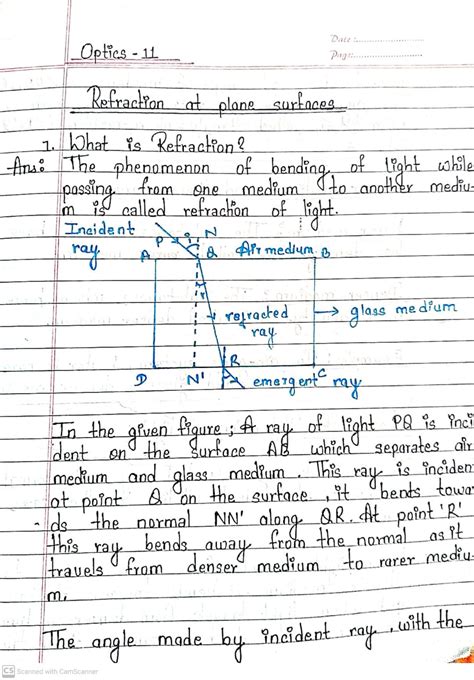 Date :
Page:
Optics - 11
Refraction at plane surfaces
1. What is Refraction?
Ans: The phenomenon of bending of light while
passing from one medium to another mediu-
m is called refraction of light.
Incident
ray
P i N
A Q Air medium B
r
refracted
ray
glass medium
R
D N' emergent ray C
In the given figure; A ray of light PQ is inci
dent on the surface AB which separates air
medium and glass medium. This ray is inciden
at point Q on the surface, it bents towa
- ds the normal NN' along QR. At point 'R'
this ray bends away from the normal as it
travels from denser medium to rarer mediu-
m.
The angle made by incident ray, with the
CS Scanned with CamScanner